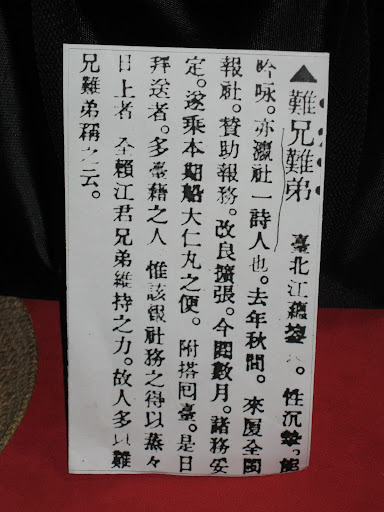 ▲難兄難弟 臺北江蘊鋆 。性沉摯。能
吟咏。亦瀛社一詩人也。去年秋間。來厦全閩
報社。贊助報務。改良擴張。今閱數月。諸務妥
定。遂乘本期船大仁丸之便。附搭囘臺。是日
拜送者。多臺籍之人 惟該報社務之得以蒸々
日上者 全賴江君兄弟維持之力。故人多以難
兄難弟稱之云。